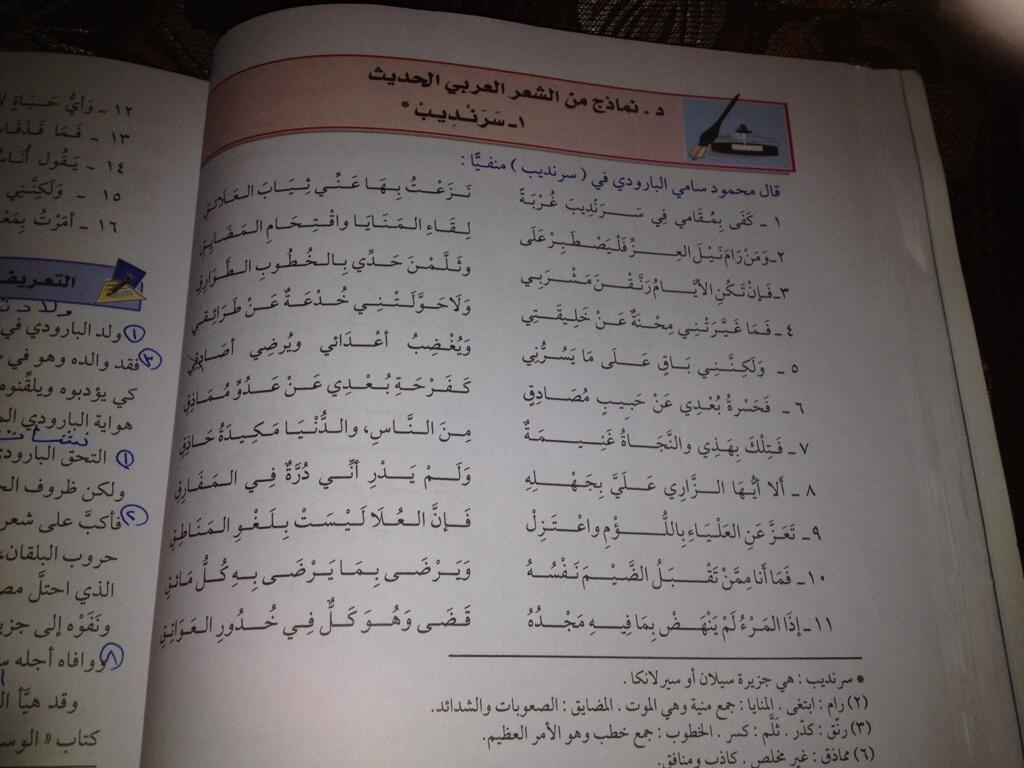 د. نماذج من الشعر العربي الحديث
١ـ سَرَنْدِيبُ *
قال محمود سامي البارودي في ( سرنديب ) منفيًّا :
١ ـ كَفَى بِمُقَامي فِي سَـرَنْدِيبَ غُرْبَةً نَـزَعْتُ بِـهَا عَنِّي ثِيَابَ العَلَائـقِ
٢ـ وَمَنْ رَامَ نَيْلَ العِـزِّ فَلْيَصْطَبِرْ عَلَى لِقَاءِ المَنَايَا وَاقْتِحَامِ المَضَايِقِ
٣ـ فَإِنْ تَكُنِ الأَيَّامُ رَنَّقْنَ مَشْرَبِي وثَلَّمْنَ حَدِّي بِـالخُطُوبِ الطَّوَارِقِ
٤ ـ فَمَا غَيَّرَتْنِي مِحْنَةٌ عَنْ خَلِيقَتِي وَلَا حَوَّلَتْنِي خُدْعَةٌ عَنْ طَرَائِقي
٥ ـ وَلَكِنَّنِي بَاقٍ عَلَى مَا يَسُرُّنِي وَيُغْضِبُ أعْدَائي ويُرضِي أصَادِقِي
٦ ـ فَحَسْرةُ بُعْدِي عَنْ حَبِيبٍ مُصَادِقٍ كَفَرْحَةِ بُعْدِي عَنْ عَدُوٍّ مُمَاذِقِ
٧ ـ فَتِلْكَ بِهَذِي والنَّجَاةُ غَنِيمَةٌ مِنَ النَّاسِ، والدُّنْيَا مَكِيدَةُ حَاذِقِ
٨ ـ أَلَا أيُّهَا الـزَّارِي عَلَيَّ بِجَهْلِهِ وَلَمْ يَدْرِ أنِّي دُرَّةٌ فِي المَفَارِقِ
٩ ـ تَعَزَّ عَنِ العَلْيَاءِ بِاللُّؤْمِ واعْتَزِلْ فَإِنَّ العُلَا لَيْسَتْ بِلَغْوِ المَنَاطِقِ
١٠ ـ فَمَا أنا مِمَّنْ تَقْبَلُ الضَّيْمَ نَفْسُهُ وَيَرْضَى بِمَا يَرْضَى بِهِ كُلُّ مَائِقِ
١١ ـ إِذَا المَرْءُ لَمْ يَنْهَضْ بِمَا فِيهِ مَجْدُهُ قَضَى وَهْوَ كَلٌّ فِي خُدُورِ العَوَاتِقِ
* سرنديب : هي جزيرة سيلان أو سيرلانكا .
(٢) رام : ابتغى . المنايا : جمع منية وهي الموت . المضايق : الصعوبات والشدائد.
(٣) رنّق : كدّر . ثَلَّم : كسر . الخطوب : جمع خطب وهو الأمر العظيم.
(٦) مماذق : غير مخلص . كاذب ومنافق .
١٢ ـ وَأيُّ حَيَـاةٍ
١٣ ـ فَمَا
١٤ ـ يَقُولُ
١٥ ـ وَلَكِنَّنِي
١٦ ـ أمَرْتُ
التعريف
ولادته
١ ولد البارودي في
٣ فقد والده وهو في
كي يؤدبوه ويلقّنوه
هواية البارودي
١ التحق البارودي
ولكن ظروف
٢ فأكبَّ على شعر
حروب البلقان،
الذي احتلَّ
ونَفَوْه إلى
٨ ووافاه أجله
وقد هيَّأ
كتاب «